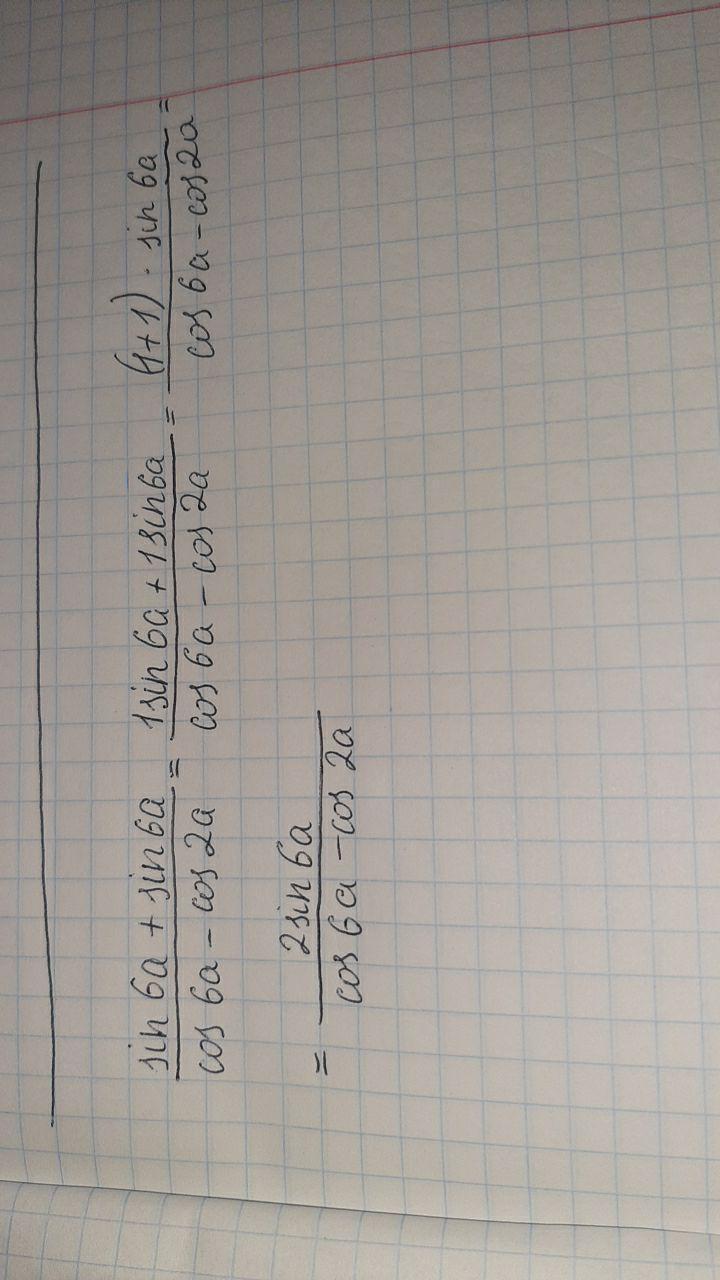 sin 6a + sin 6a / cos 6a - cos 2a = 1sin 6a + 1sin 6a / cos 6a - cos 2a = (1+1) · sin 6a / cos 6a - cos 2a =
= 2 sin 6a / cos 6a - cos 2a